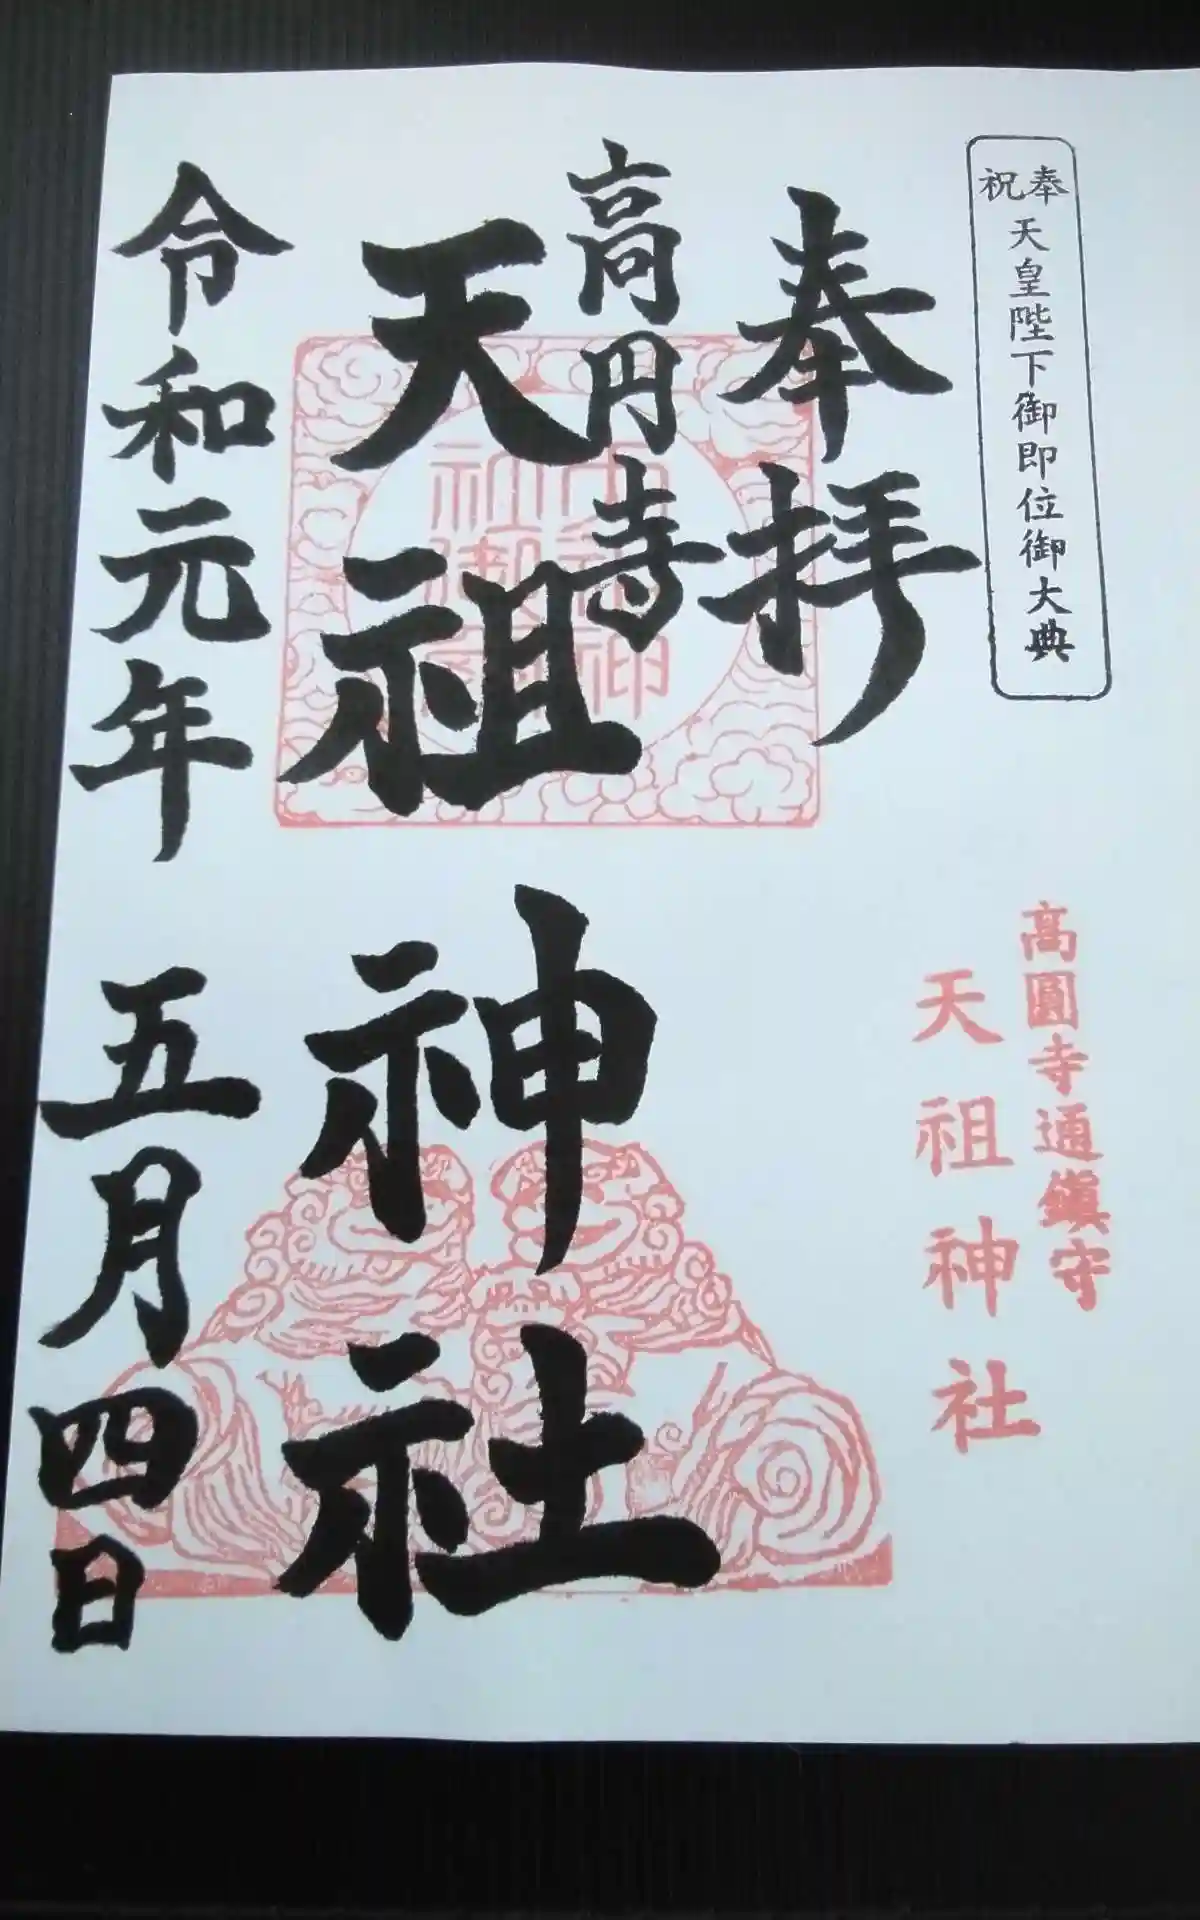 奉祝
天皇陛下御即位御大典
高圓寺通鎮守
天祖神社
奉拝
高円寺
天祖神社
令和元年 五月四日